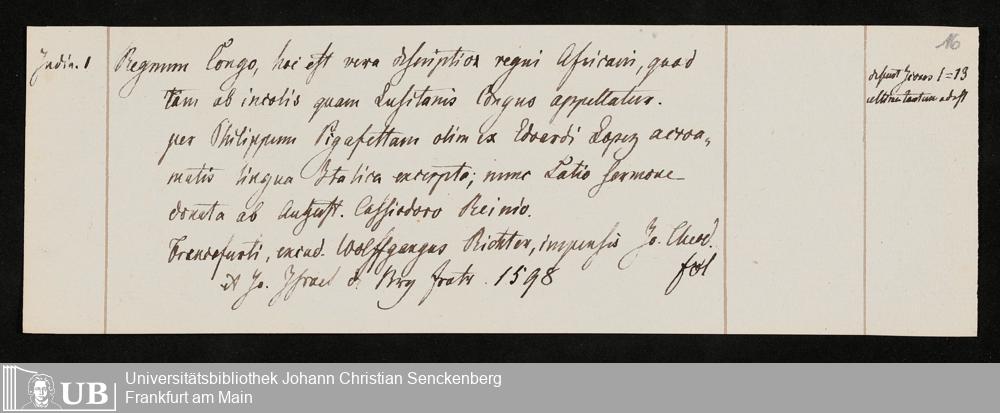 16
India. 1
Regnum Congo, hoc est vera descriptio regni Africani, quod
tam ab incolis quam Lusitanis Congus appellatur.
per Philippum Pigafettam olim ex Edoardi Lopez acroa„
matis lingua Italica excerpta; nunc Latio sermone
donata ab August. Cassiodoro Reinio.
Francofurti, excud. Wolffgangus Richter, impensis Jo. Theod.
et Jo. Israel de Bry fratr. 1598 fol
desunt 1=13
ultima tantum adest
UB
Universitätsbibliothek Johann Christian Senckenberg
Frankfurt am Main